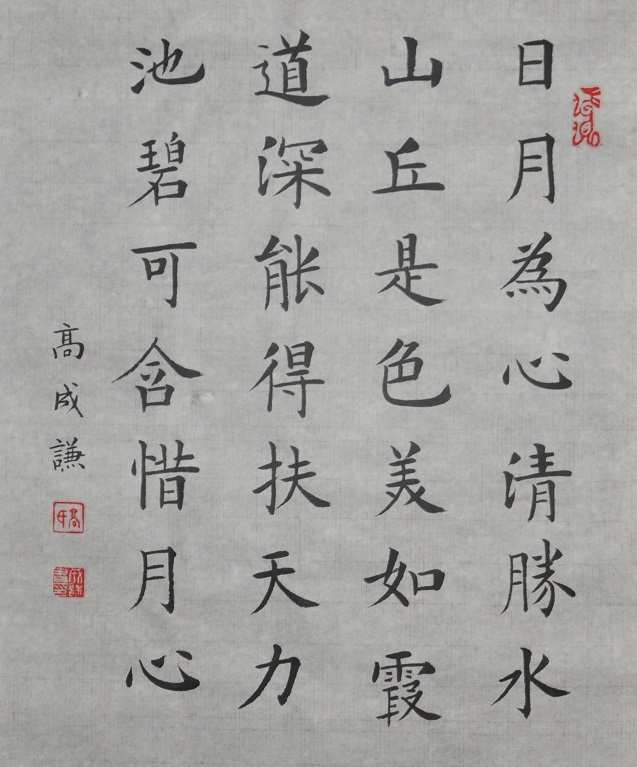 日月為心清勝水
山丘是色美如霞
道深能得扶天力
池碧可含惜月心
高成謙